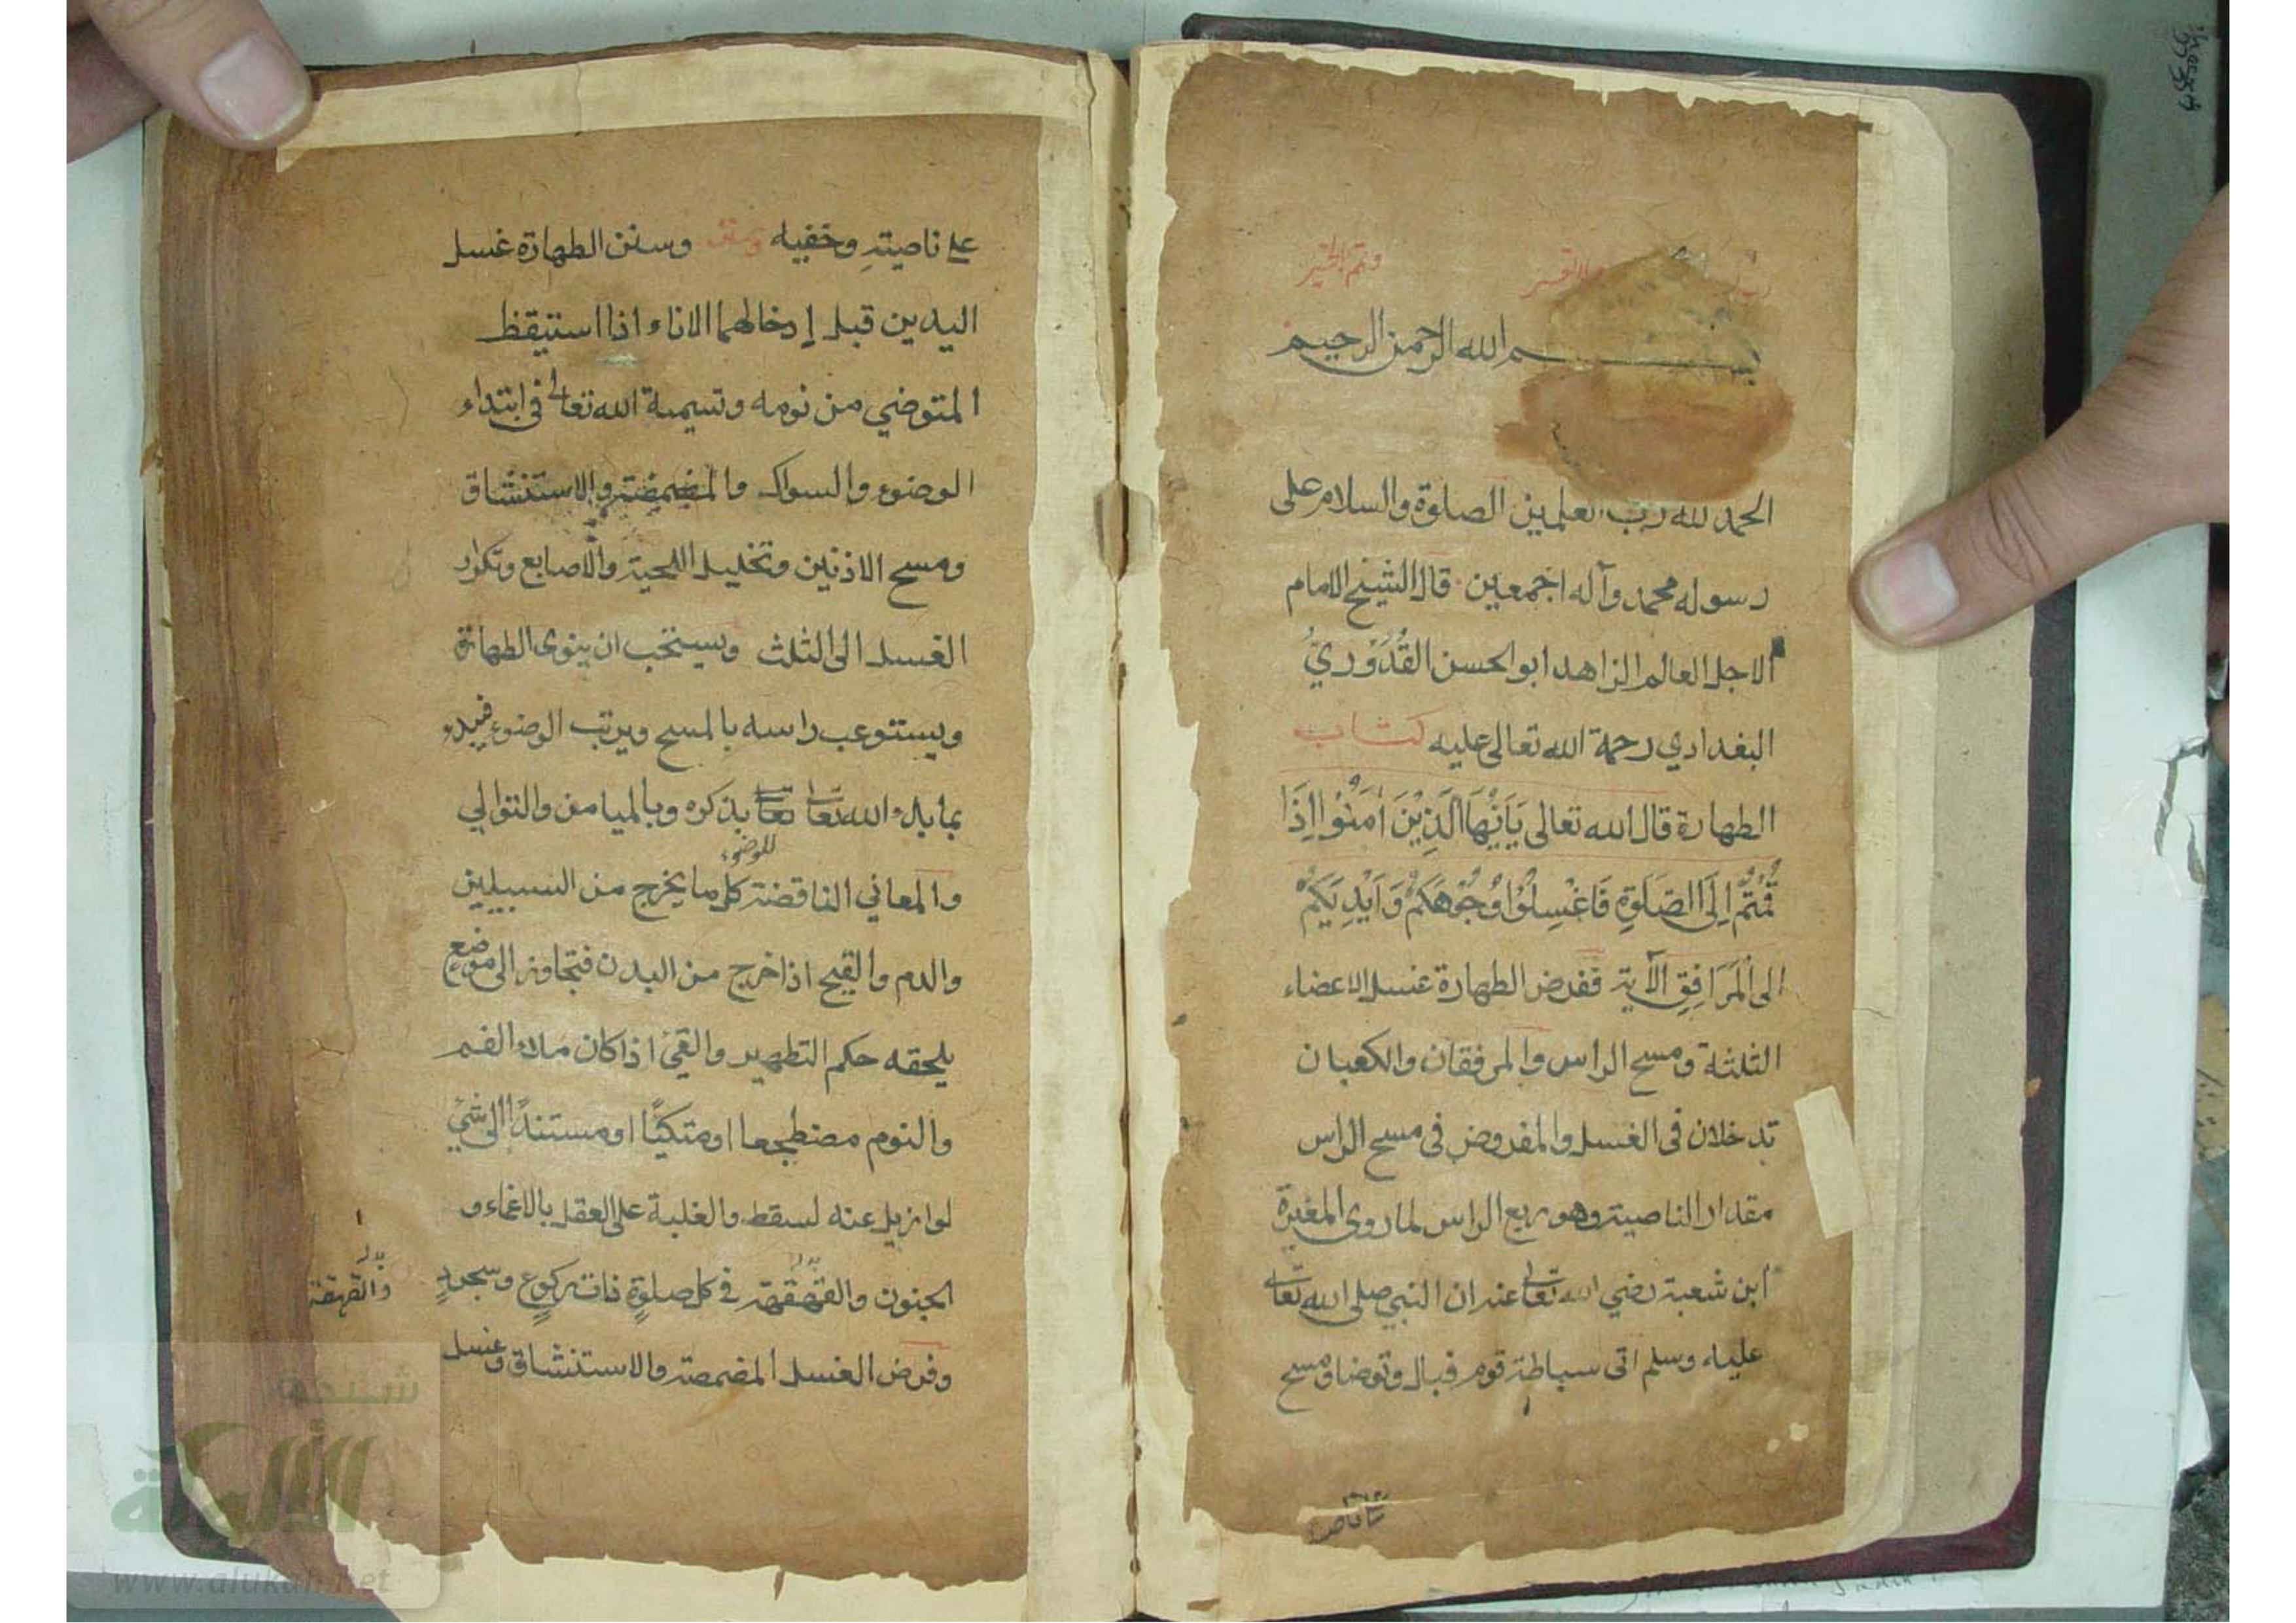 وتمم بالخير
بسم الله الرحمن الرحيم
الحمد لله رب العلمين الصلوة والسلام على
رسوله محمد وآله اجمعين قال الشيخ الامام
الاجل العالم الزاهد ابو الحسن القُدُوْرِيُّ
البغدادي رحمة الله تعالى عليه كتاب
الطهارة قال الله تعالى يَاَيُّهَا الَّذِيْنَ اٰمَنُوْا اِذَا
قُمْتُمْ اِلَى الصَّلٰوةِ فَاغْسِلُوْا وُجُوْهَكُمْ وَاَيْدِيَكُمْ
الى الْمَرَافِقِ الآية ففرض الطهارة غسل الاعضاء
الثلثة ومسح الراس والمرفقان والكعبان
تدخلان فى الغسل والمفروض فى مسح الراس
مقدار الناصية وهو ربع الراس لما روى المغيرة
ابن شعبة رضي الله تعالى عنه ان النبي صلى الله تعالى
عليه وسلم اتى سباطة قوم فبال وتوضا ومسح
على ناصيته وخفيه وسنن الطهارة غسل
اليدين قبل إدخالهما الاناء اذا استيقظ
المتوضي من نومه وتسمية الله تعالى فى ابتداء
الوضوء والسواك والمضمضة والاستنشاق
ومسح الاذنين وتخليل اللحية والاصابع وتكرار
الغسل الى الثلث ويستحب ان ينوى الطهارة
ويستوعب راسه بالمسح ويرتب الوضوء فيبدء
بما بدء الله تعالى تعالى بذكره وبالميامن والتوالي
للوضوء
والمعاني الناقضة كل ما يخرج من السبيلين
والدم والقيح اذا خرج من البدن فتجاوز الى موضع
يلحقه حكم التطهير والقئ اذا كان ملاء الفم
والنوم مضطجعا او متكئًا او مستندًا الى شئ
لو ازيل عنه لسقط والغلبة على العقل بالاغماء و
الجنون والقهقهة فى كل صلوةٍ ذات ركوعٍ وسجودٍ
والقهقهة
وفرض الغسل المضمضة والاستنشاق وغسل
على ناصيته
شبكة
الألوكة
www.alukah.net